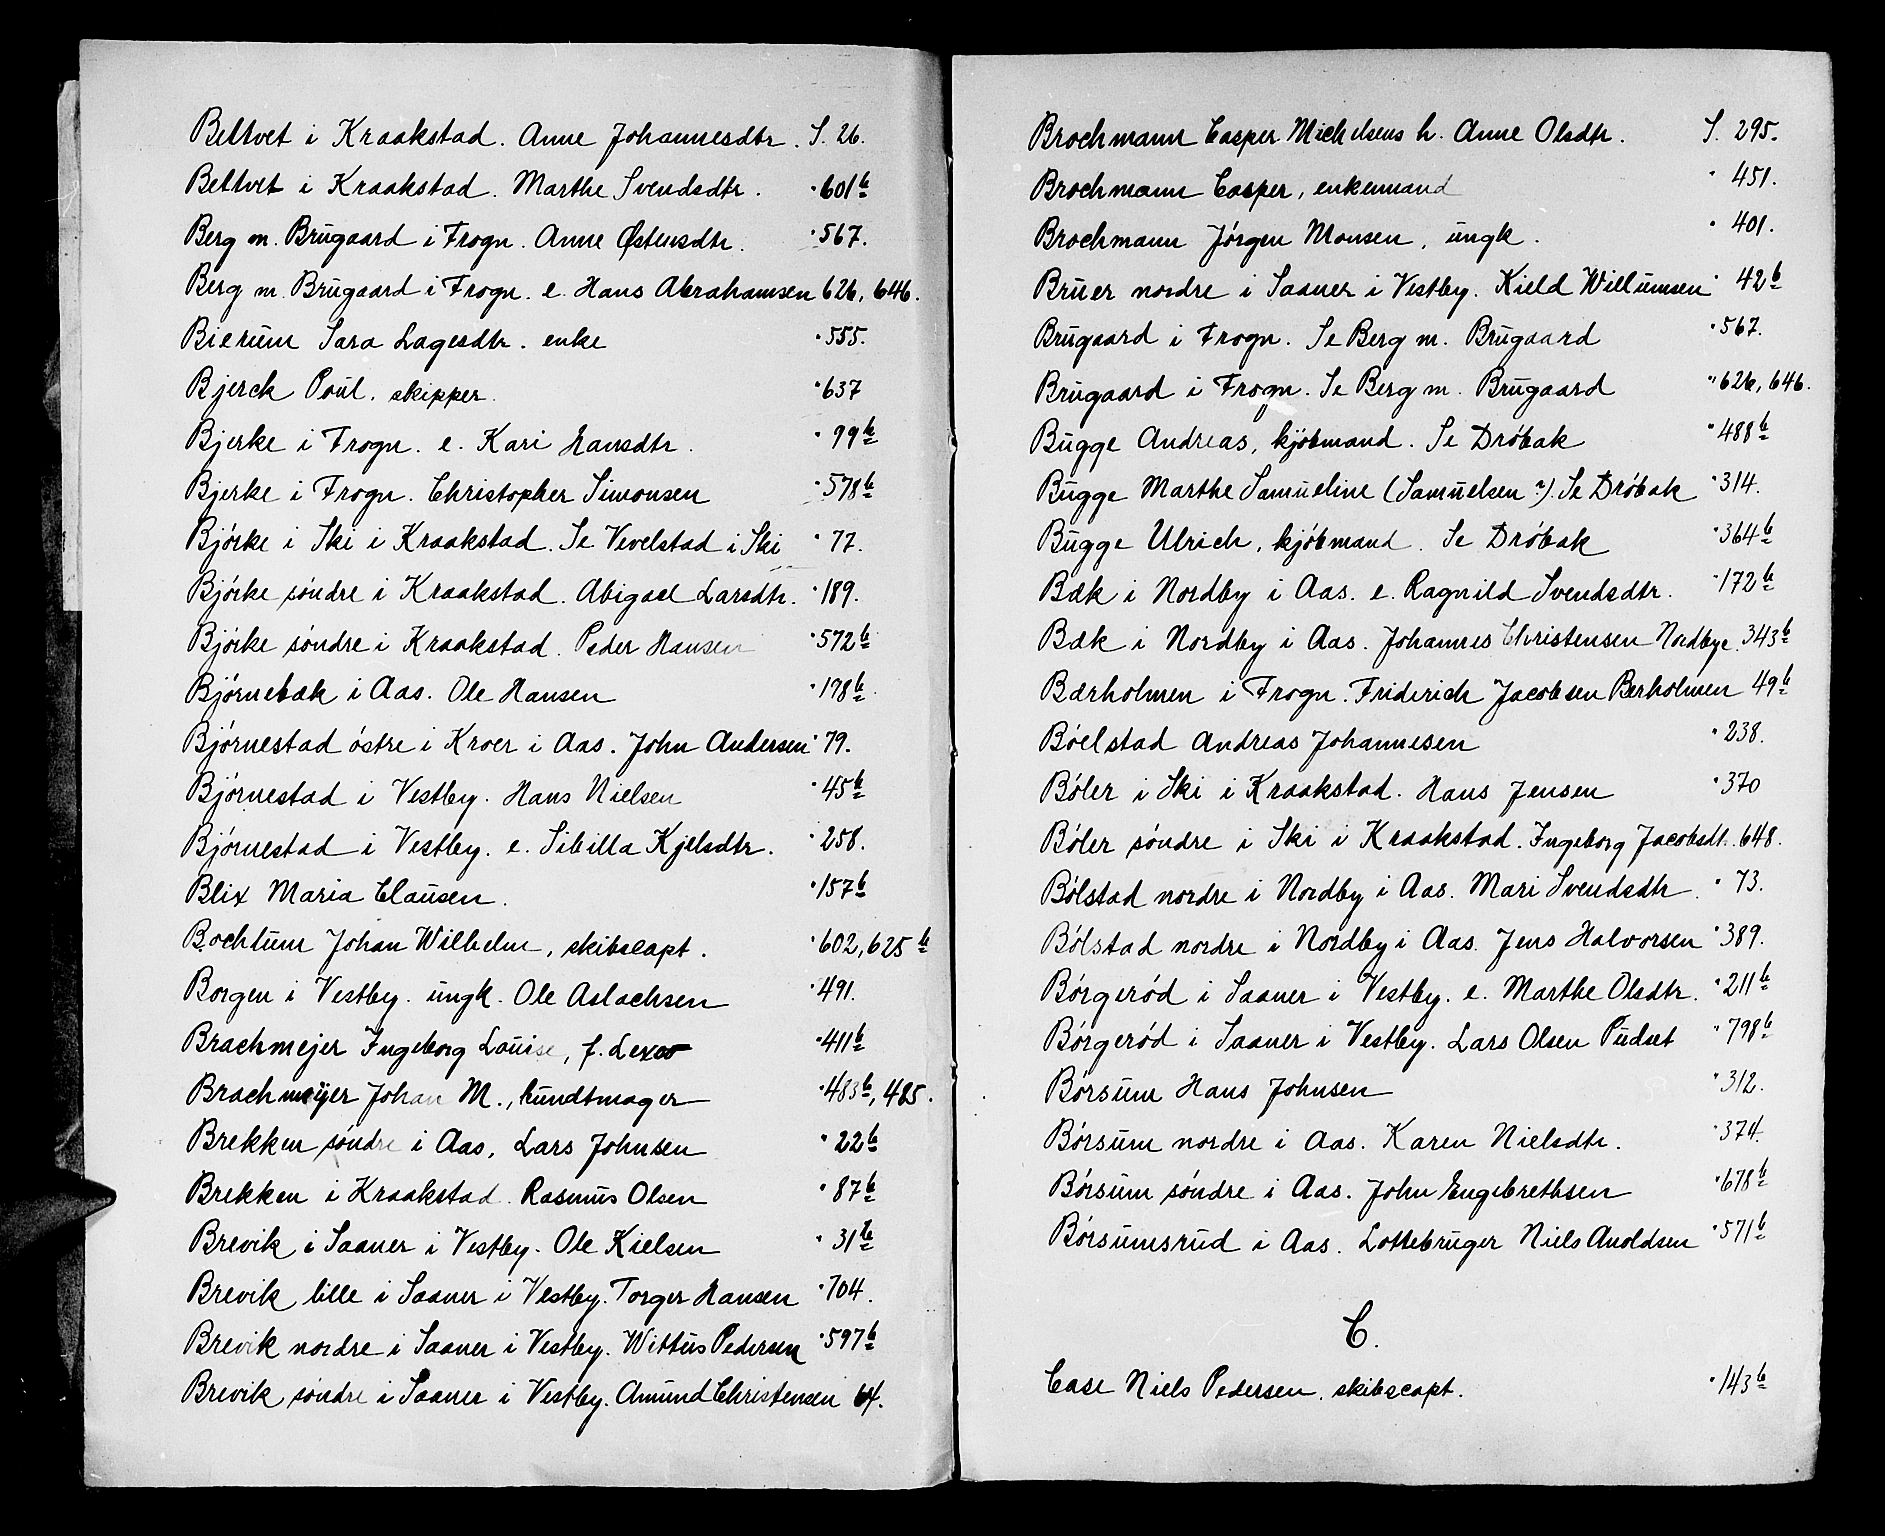 Beltvet i Kraakstad. Anne Johannesdtr. S. 26.
Beltvet i Kraakstad. Marthe Svendsdtr. " 601b
Berg m. Brugaard i Frogn. Anne Østensdtr. " 567.
Berg m. Brugaard i Frogn. e. Hans Abrahamsen 626, 646.
Bierum Sara Lagesdtr. enke " 555.
Bjerck Poul, skipper. " 637
Bjerke i Frogn. e. Kari Hansdtr. " 99b
Bjerke i Frogn. Christopher Simonsen " 578b
Bjórke i Ski i Kraakstad. Se Vevelstad i Ski " 77.
Bjórke sóndre i Kraakstad. Abigael Larsdtr. " 189.
Bjórke sóndre i Kraakstad. Peder Hansen " 572b
Bjórnebæk i Aas. Ole Hansen " 178b
Bjórnestad óstre i Kroer i Aas. John Andersen " 79.
Bjórnestad i Vestby. Hans Nielsen " 45b
Bjórnestad i Vestby. e. Sibilla Kjelsdtr. " 258.
Blix Maria Clausen. " 157b
Bochtum Johan Wilhelm, skibscapt. " 602, 625b
Borgen i Vestby. ungk. Ole Aslachsen " 491.
Brachmejer Ingeborg Louise, f. Lexow " 411b
Brachmeÿer Johan M., bundtmager " 483b, 485.
Brekken sóndre i Aas, Lars Johnsen " 22b
Brekken i Kraakstad. Rasmus Olsen " 87b
Brevik i Saaner i Vestby. Ole Kielsen " 31b
Brevik lille i Saaner i Vestby. Torger Hansen " 704.
Brevik nordre i Saaner i Vestby. Wittus Pedersen " 597b
Brevik sóndre i Saaner i Vestby. Amund Christensen 64.
Brochmann Casper Michelsens h. Anne Olsdtr. S. 295.
Brochmann Casper, enkemand " 451.
Brochmann Jórgen Monsen, ungk. " 401.
Bruer nordre i Saaner i Vestby. Kield Willumsen " 42b
Brugaard i Frogn. Se Berg m. Brugaard " 567.
Brugaard i Frogn. Se Berg m. Brugaard " 626, 646.
Bugge Andreas, kjóbmand. Se Dróbak " 488b
Bugge Marthe Samueline (Samuelsen ?). Se Dróbak " 314.
Bugge Ulrich, kjóbmand. Se Dróbak " 364b
Bæk i Nordby i Aas. e. Ragnild Svendsdtr. " 172b
Bæk i Nordby i Aas. Johannes Christensen Nordbye. 343b
Bærholmen i Frogn. Friderich Jacobsen Berholmen 49b
Bóelstad Andreas Johannesen " 238.
Bóler i Ski i Kraakstad. Hans Jensen " 370
Bóler sóndre i Ski i Kraakstad. Ingeborg Jacobsdt. 648.
Bólstad nordre i Nordby i Aas. Mari Svendsdtr. " 73.
Bólstad nordre i Nordby i Aas. Jens Halvorsen " 389.
Bórgeród i Saaner i Vestby. e. Marthe Olsdtr. " 211b
Bórgeród i Saaner i Vestby. Lars Olsen Pudset " 798b
Bórsum Hans Johnsen " 312.
Bórsum nordre i Aas. Karen Nielsdtr. " 374.
Bórsum sóndre i Aas. John Engebrethsen " 678b
Bórsumsrud i Aas. Lottebruger Niels Anoldsen " 571b
C.
Case Niels Pedersen, skibscapt. " 143b